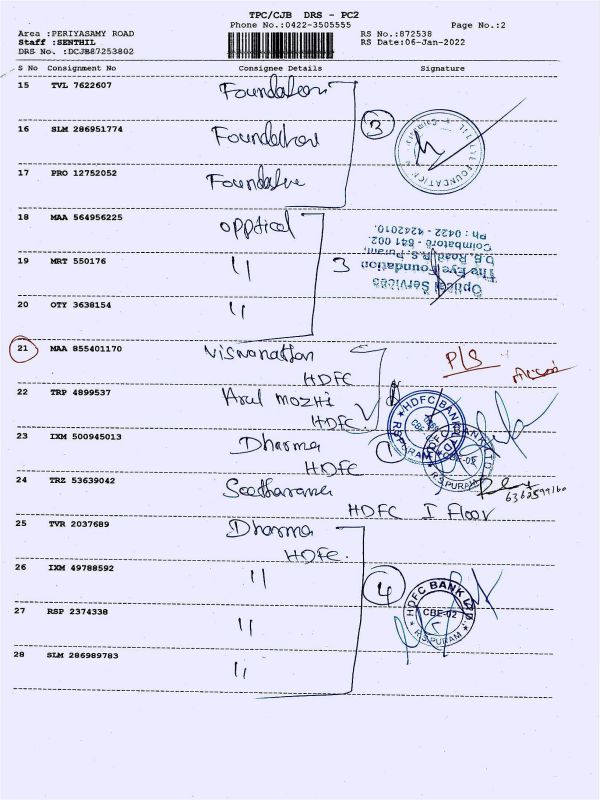 TPC/CJB DRS - PC2
Phone No.:0422-3505555
Page No.:2
Area :PERIYASAMY ROAD
Staff :SENTHIL
DRS No. :DCJB87253802
RS No.:872538
RS Date:06-Jan-2022
S No Consignment No Consignee Details Signature
15 TVL 7622607 Foundation
16 SLM 286951774 Foundation
3
17 PRO 12752052 Foundation
18 MAA 564956225 opptical
19 MRT 550176 "
3
20 OTY 3638154 "
Optical Services
The Eye Foundation
D.B. Road, R.S. Puram,
Coimbatore - 641 002.
Ph : 0422 - 4242010.
21 MAA 855401170 Viswanathan
HDFC
P/S
22 TRP 4899537 Arul mozhi
HDFC
HDFC BANK LTD
R.S.PURAM
CBE-02
23 IXM 500945013 Dharma
HDFC
1
24 TRZ 53639042
HDFC I Floor
25 TVR 2037689 Dharma
HDFC.
26 IXM 49788592 "
4
HDFC BANK LTD.
CBE-02
R.S.PURAM
27 RSP 2374338 "
28 SLM 286989783 "